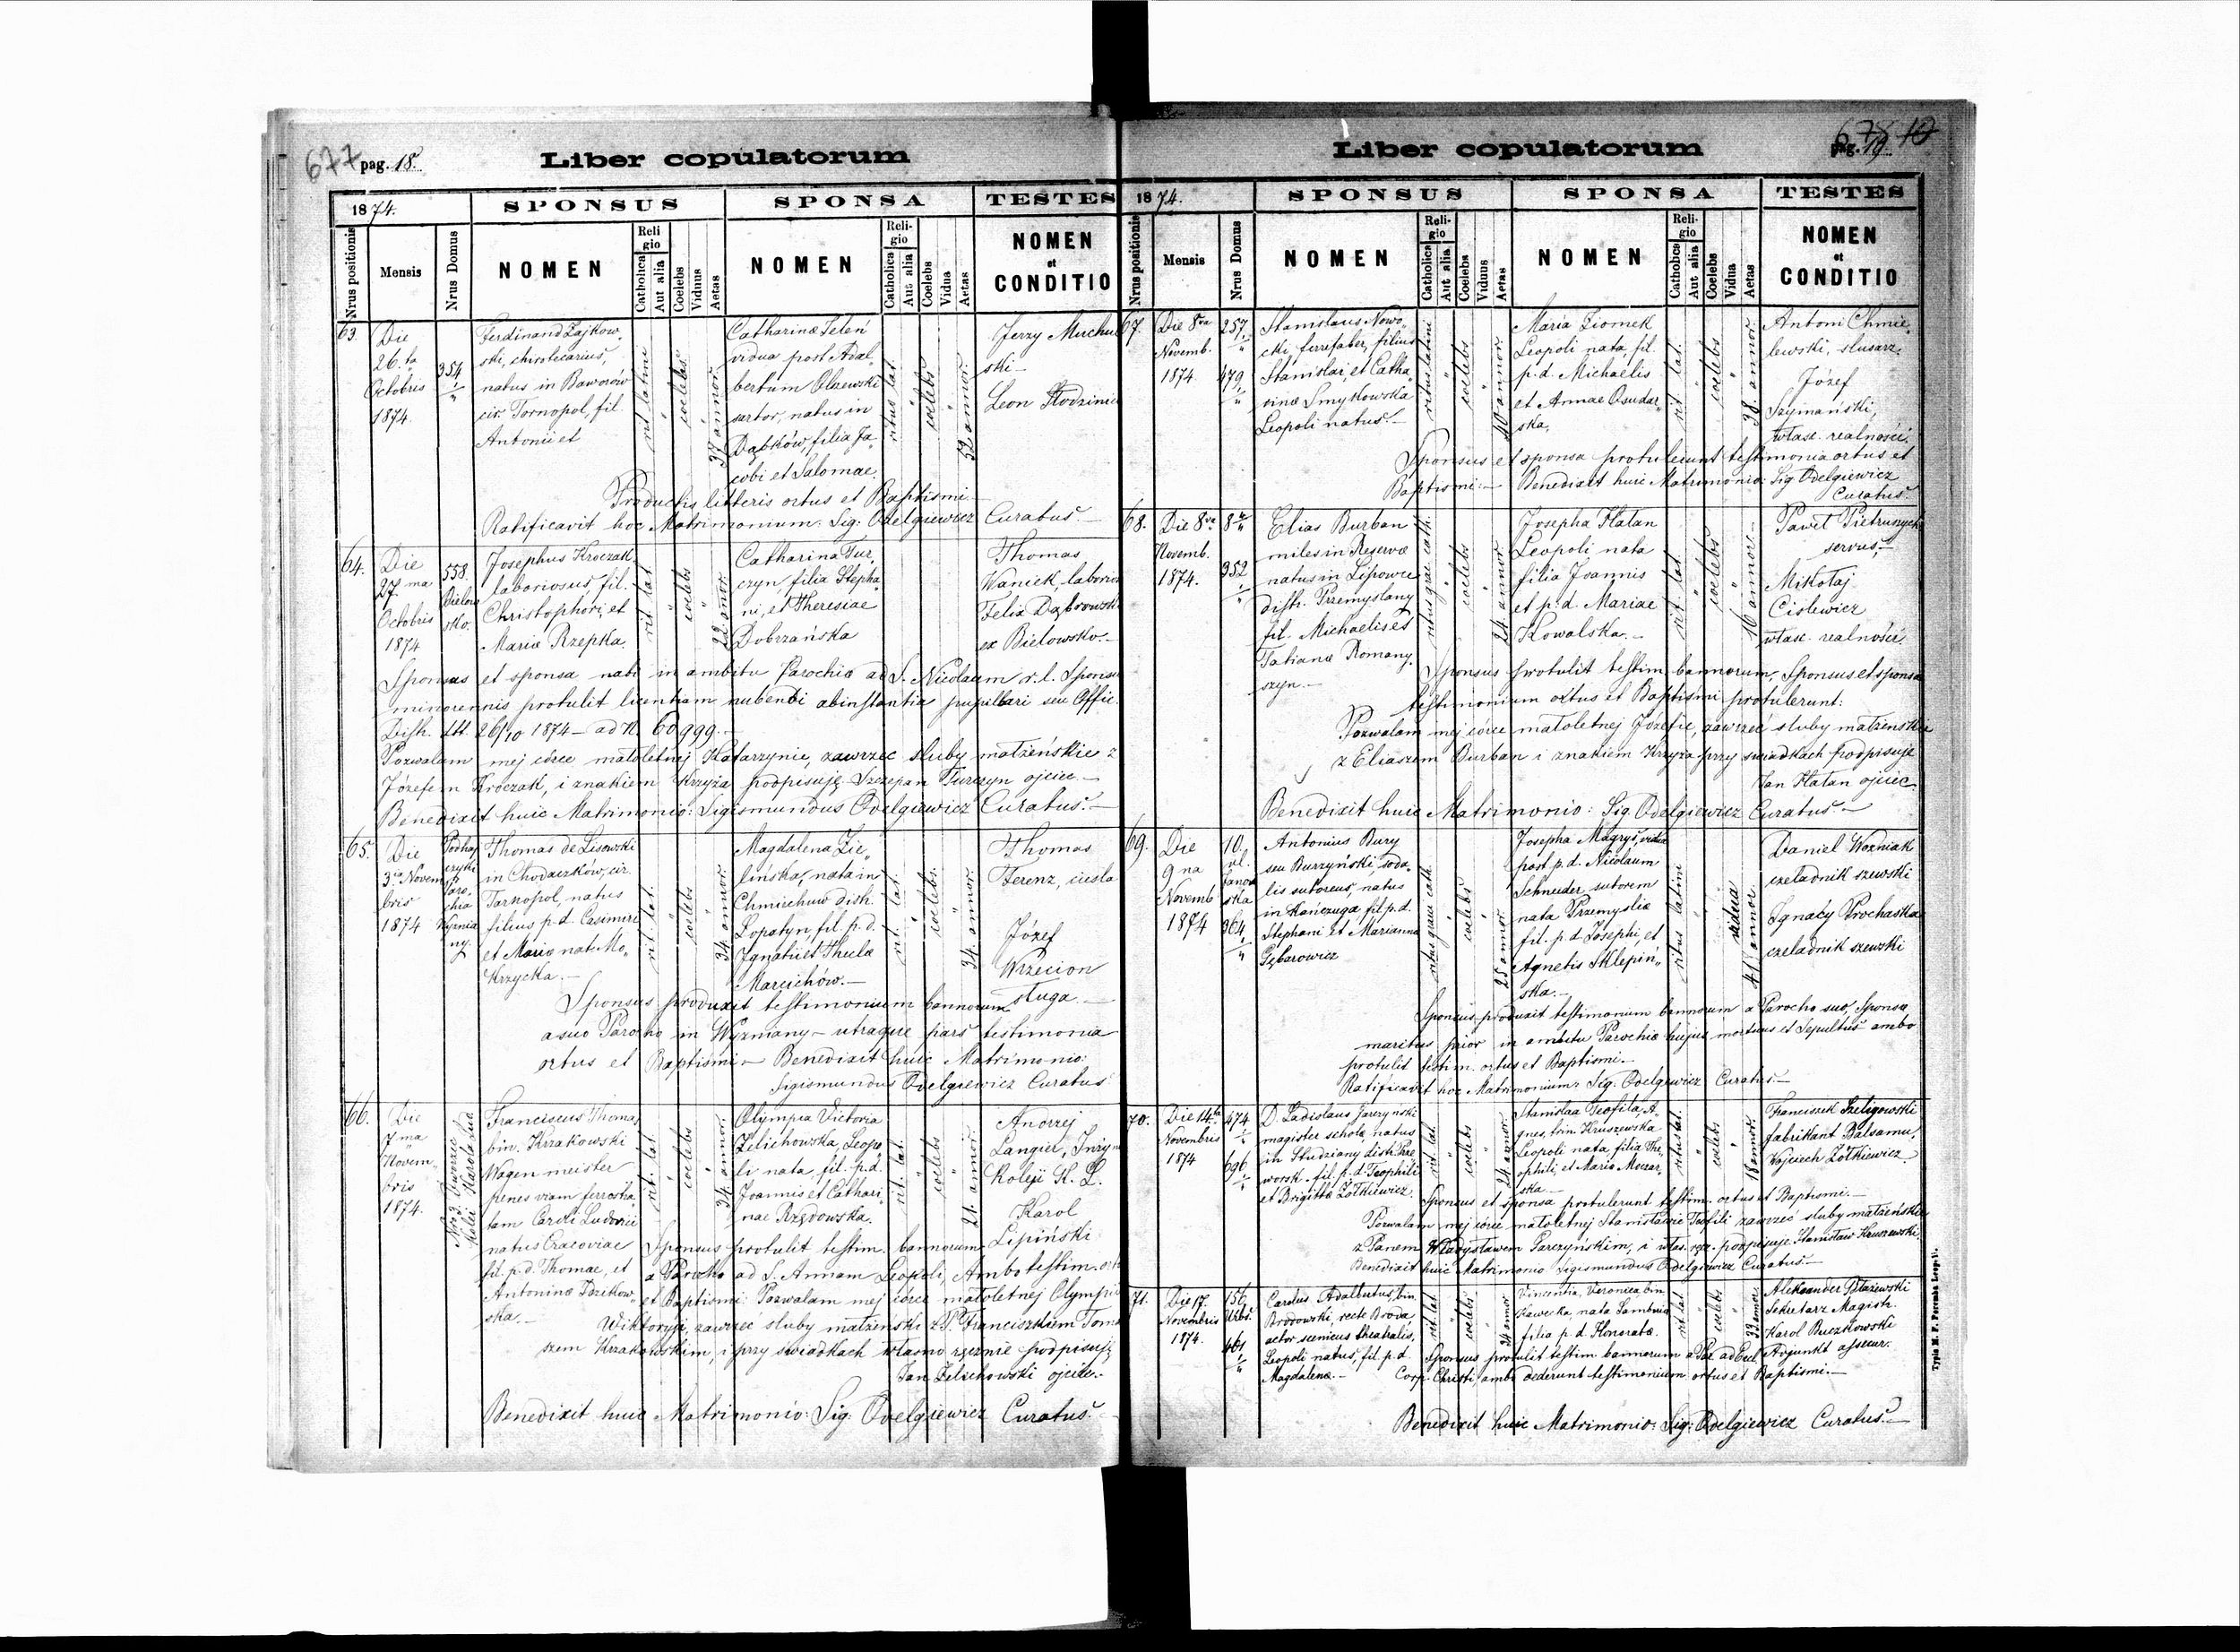 677 pag. 18.
Liber copulatorum
1874.
SPONSUS
SPONSA
TESTES
Nrus positionis
Mensis
Nrus Domus
NOMEN
Religio
Catholica
Aut alia
Coelebs
Viduus
Aetas
NOMEN
Religio
Catholica
Aut alia
Coelebs
Vidua
Aetas
NOMEN
et
CONDITIO
63.
Die
26.ta
Octobris
1874.
354
Ferdinand Zajkow„
ski, chirotecarius,
natus in Baworów
cir. Tornopol, fil.
Antonii et
rit latini
coelebs
37 annor.
Catharina Teleń
vidua post Adal„
bertum Olszewski
sartor, natus in
Dąbków, filia Ja„
cobi et Salomae.
ritus lat.
coelebs
52 annor.
Jerzy
ski
Leon
Productis litteris ortus et Baptismi
Ratificavit hoc Matrimonium: Sig: Odelgiewicz Curatus.
64.
Die
27.ma
Octobris
1874
558.
Bielow
sko.
Josephus Kroczak,
laboriosus, fil.
Christophori, et
Maria Rzepka.
rit lat.
coelebs
22 annor.
Catharina Tur„
czyn, filia Stepha„
ni, et Theresiae
Dobrzańska
Thomas
Waniek, laborio
Felix Dąbrowski
ex Bielowsko.
Sponsus et sponsa nati in ambitu Parochiae ad S. Nicolaum r. l. Sponsa
minorennis protulit licentiam nubendi ab instantia pupillari seu Offic.
Distr. dtt. 26/10 1874 ad N. 60999.
Pozwalam mej córce małoletnej Katarzynie, zawrzec śluby małżeńskie z
Józefem Kroczak, i znakiem Krzyża podpisuję Szczepan Turczyn ojciec
Benedixit huic Matrimonio: Sigismundus Odelgiewicz Curatus.
65.
Die
3.ia Novem
bris
1874
Podhaj
czyki
Paro
chia
Wyżnia
ny.
Thomas de Lisowski
in Chodaczków, cir.
Tarnopol, natus
filius p.d. Casimiri
et Maria nat. Mo„
krzycka.
rit. lat.
coelebs
34 annor.
Magdalena Zie„
lińska, nata in
distr.
Lopatyn, fil. p.d.
Ignatii et Thecla
Marcichów.
rit. lat.
coelebs.
34 annor.
Thomas
Ferenz,
Józef
Wrzecion
sługa.
Sponsus produxit testimonium bannorum
a suo Parocho in Wyżniany utraque pars testimonia
ortus et Baptismi. Benedixit huic Matrimonio:
Sigismundus Odelgiewicz Curatus
66.
Die
7 ma
Novem„
bris
1874.
Nr. 3. Dworzec
Kolei Karola Lud
Franciscus Thoma,
bin. Krzakowski
Wagenmeister
penes viam ferrostra„
tam Caroli Ludovici
natus Cracoviae
fil. p.d. Thomae, et
Antonina Dzikow„
ska.
rit. lat.
coelebs
34. annor.
Olympia Victoria
Zelichowska Leopo„
li nata, fil. p.d.
Joannis et Cathari„
nae Rzędowska.
rit. lat.
coelebs
21. annor.
Andrzej
Langier, Inżyn
Koleji K. L.
Karol
Lipiński
Sponsus protulit testim. bannorum
a Parocho ad S. Annam Leopoli, Ambo testim. ort
et Baptismi: Pozwalam mej córce małoletnej Olympii
Wiktoryji, zawrzec śluby małżeński z P. Franciszkiem Toma
szem Krzakowskim, i przy świadkach własno ręcznie podpisuję
Jan Zelichowski ojciec.
Benedixit huic Matrimonio: Sig: Odelgiewicz Curatus
Liber copulatorum
678 10
pag. 19.
1874.
SPONSUS
SPONSA
TESTES
Nrus positionis
Mensis
Nrus Domus
NOMEN
Religio
Catholica
Aut alia
Coelebs
Viduus
Aetas
NOMEN
Religio
Catholica
Aut alia
Coelebs
Vidua
Aetas
NOMEN
et
CONDITIO
67.
Die 8va
Novemb.
1874
257.
479
Stanislaus Nowo„
cki, ferrifaber, filius
Stanislai, et Catha„
rinae Smykowska
Leopoli natus.
ritus latini
coelebs
40 annor.
Maria Ziomek
Leopoli nata, fil.
p.d. Michaelis
et Annae Osudar„
ska.
rit lat.
coelebs
38. annor.
Antoni Chmie„
lewski, slusarz.
Józef
Szymański,
właśc. realności.
Sponsus et sponsa protulerunt testimonia ortus et
Baptismi: Benedixit huic Matrimonio: Sig Odelgiewicz
Curatus.
68.
Die 8va
Novemb.
1874.
8
352
Elias Burban
miles in Reserva
natus in Lipowce
distr. Przemyslany
fil. Michaelis et
Tatiana Romany„
szyn.
ritus graec cath.
coelebs
24 annor.
Josepha Flatan
Leopoli nata
filia Joannis
et p.d. Mariae
Kowalska.
rit. lat.
coelebs
16 annor.
Paweł
servus,
Mikołaj
Cislewicz
właśc. realności
Sponsus protulit testim bannorum, Sponsus et sponsa
testimonium ortus et Baptismi protulerunt:
Pozwalam mej córce małoletnej Józefie, zawrzeć śluby małżeńskie
z Eliaszem Burban i znakiem Krzyża przy świadkach podpisuję
Jan Flatan ojciec
Benedixit huic Matrimonio: Sig. Odelgiewicz Curatus.
69.
Die
9 na
Novemb
1874
10.
ul.
Janow
ska
364
Antonius Bury
seu Burzyński, soda„
lis sutoreus, natus
in Kańczuga fil. p.d.
Stephani et Marianna
Gębarowicz
ritus graeci cath.
coelebs
25 annor.
Josepha Magryś, vidua
post p.d. Nicolaum
Schneider sutorem
nata Przemysliae
fil. p.d Josephi, et
Agnetis Sklepiń„
ska.
ritus latini
vidua
41 annor.
Daniel Wozniak
czeladnik szewski
Ignacy Prochaska
czeladnik szewski
Sponsus produxit testimonium bannorum a Parocho suo, Sponsa
maritus prior in ambitu Parochiae hujus mortuus et Sepultus ambo
protulit testim. ortus et Baptismi.
Ratificavit hoc Matrimonium: Sig. Odelgiewicz Curatus.
70.
Die 14.ta
Novembris
1874
474
696
D. Ladislaus Jarczyński
magister schola, natus
in Studziany distr. Prze
worsk. fil. p.d Teophili
et Brigitta Zołtkiewicz
rit lat.
coelebs
24 annor.
Stanislaa Teofila, A„
gnes, trin. Kruszewska
Leopoli nata filia The„
ophili, et Maria Moczar„
ska
ritus lat.
coelebs
18 annor.
Franciszek Szeligowski
fabrikant Balsamu,
Wojciech Zołtkiewicz
Sponsus et sponsa protulerunt testim. ortus et Baptismi.
Pozwalam mej córce małoletnej Stanisławie Teofili zawrzeć śluby małżeńskie
z Panem Władysławem Jarczyńskim, i włas. ręz. podpisuję Stanisław Kruszewski.
Benedixit huic Matrimonio Sigismundus Odelgiewicz Curatus
71.
Die 17.
Novembris
1874.
156
Urbs.
461
Carolus Adalbertus, bin.
Brodowski, recte Broda
actor scenicus theatralis,
Leopoli natus, fil. p.d.
Magdalena.
rit lat.
coelebs
34 annor
Vincentia, Veronica bin.
Kawecka, nata Sambriae
filia p.d. Honorata.
rit lat
coelebs
33 annor.
Aleksander Błażewski
Sekretarz Magistr.
Karol Buczkowski
Adjunkt assecur.
Sponsus protulit testim bannorum a Par ad Eccl.
Corp. Christi, ambo dederunt testimonium ortus et Baptismi.
Benedixit huic Matrimonio: Sig: Odelgiewicz Curatus
Typis M. F. Poremba Leop.